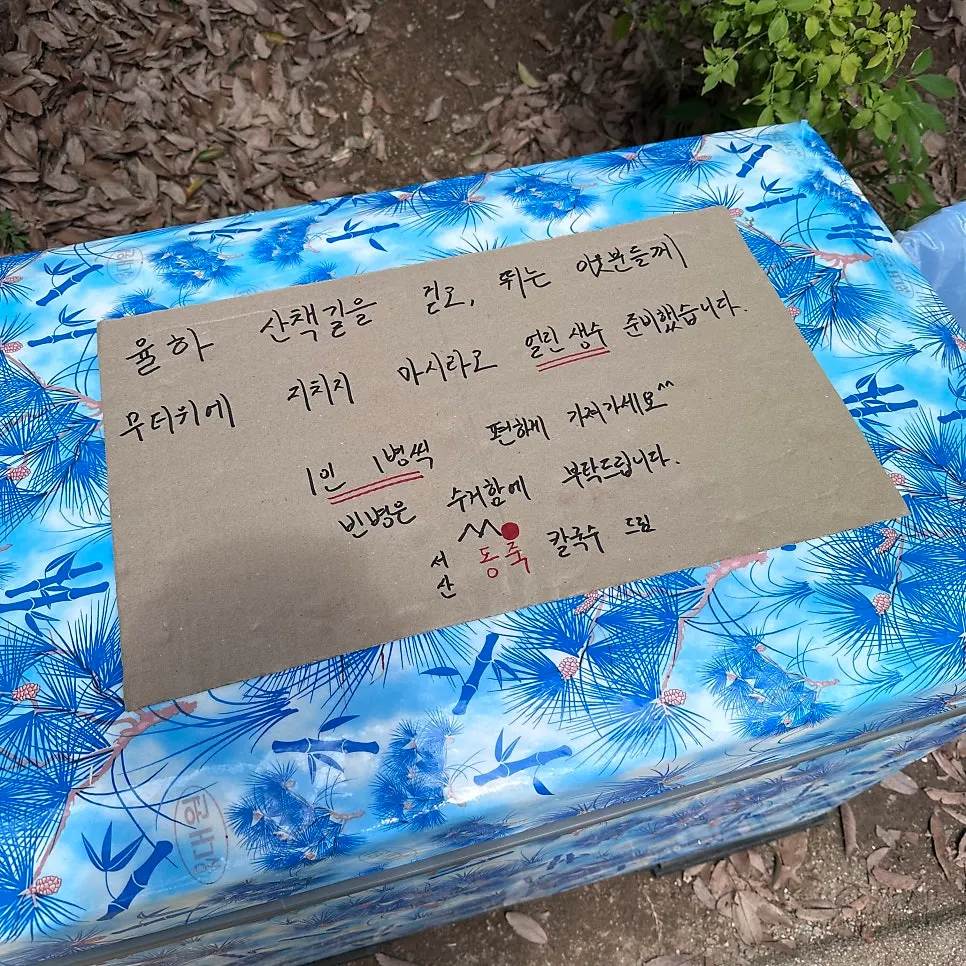 율하 산책길을 걷고, 뛰는 이웃분들께
무더위에 지치지 마시라고 얼린 생수 준비했습니다.
1인 1병씩 편하게 가져가세요^^
빈병은 수거함에 부탁드립니다.
서산 동죽 칼국수 드림